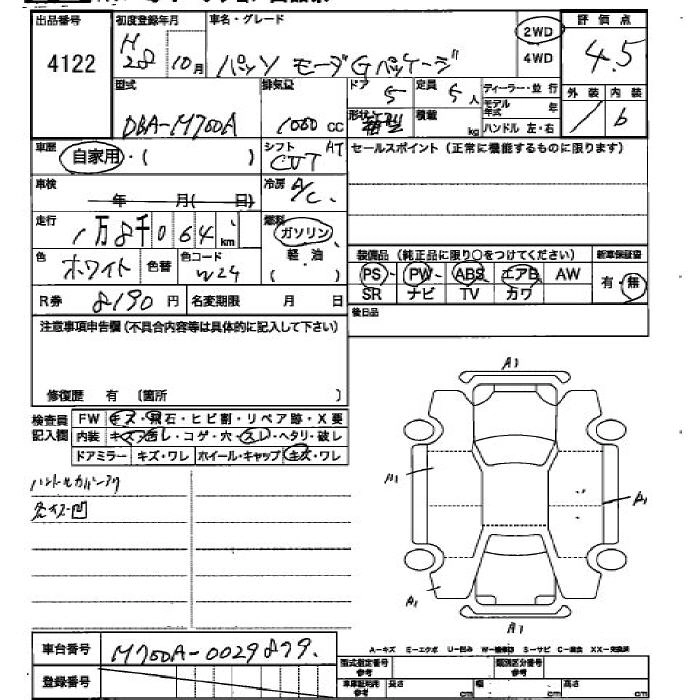 出品番号 初度登録年月 車名・グレード 2WD 評価点
4122 H28 10月 パッソ モーダGパッケージ 4WD 4.5
型式 排気量 ドア 5 定員 5人 ディーラー・並行 外装 内装
DBA-M700A 1000cc 形状 箱型 積載 kg モデル年式 年 ハンドル 左・右 / b
車歴 自家用・( ) シフト AT CVT セールスポイント(正常に機能するものに限ります)
車検 年 月(日) 冷房 A/C
走行 1万8千064km 燃料 ガソリン 軽油 ( )
色 ホワイト 色替 色コード W24 装備品(純正品に限り○をつけてください) 新車保証書
PS・PW・ABS・エアB AW 有・無
SR ナビ TV カワ
R券 8190円 名変期限 月 日 後日品
注意事項申告欄(不具合内容等は具体的に記入して下さい)
修復歴 有 (箇所 )
検査員記入欄 FW キズ・飛石・ヒビ割・リペア跡・X要
内装 キズ・コゲ・穴・スレ・ヘタリ・破レ
ドアミラー キズ・ワレ ホイール・キャップ キズ・ワレ
A1
A1
A1
A1
A1
車台番号 M700A-0029879.
登録番号
A-キズ E-エクボ U-凹み W-補修跡 S-サビ C-腐食 XX-交換済
型式指定番号 類別区分番号
長さ cm 幅 cm 高さ cm